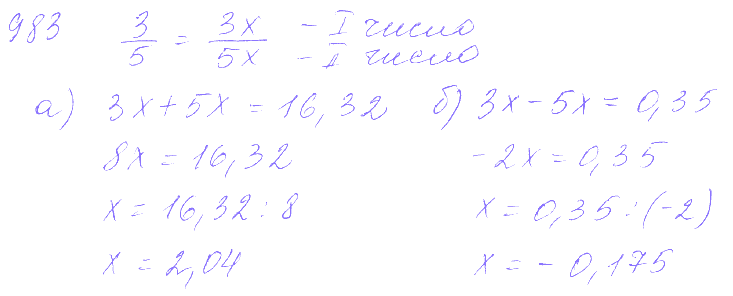 983 3/5 = 3x/5x - I число - II число
а) 3x+5x = 16,32
8x = 16,32
x = 16,32 : 8
x = 2,04
б) 3x - 5x = 0,35
-2x = 0,35
x = 0,35 : (-2)
x = - 0,175